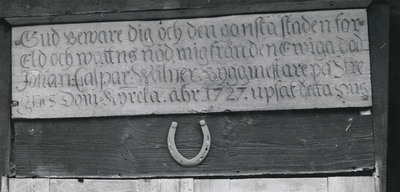 Gud Beware dig och den gansta staden for
Eld och wattns nöd mig från den Ewiga död
Johan Caspar Wülner. Bÿggmestare på
Dom-Kyrcla. åhr 1727. upsat detta Hus